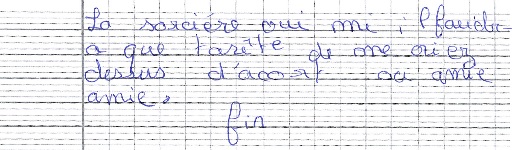 La sorcière oui me, il faudr-
a que tarète de me crier
dessus d'acort ou amie
amie.
fin